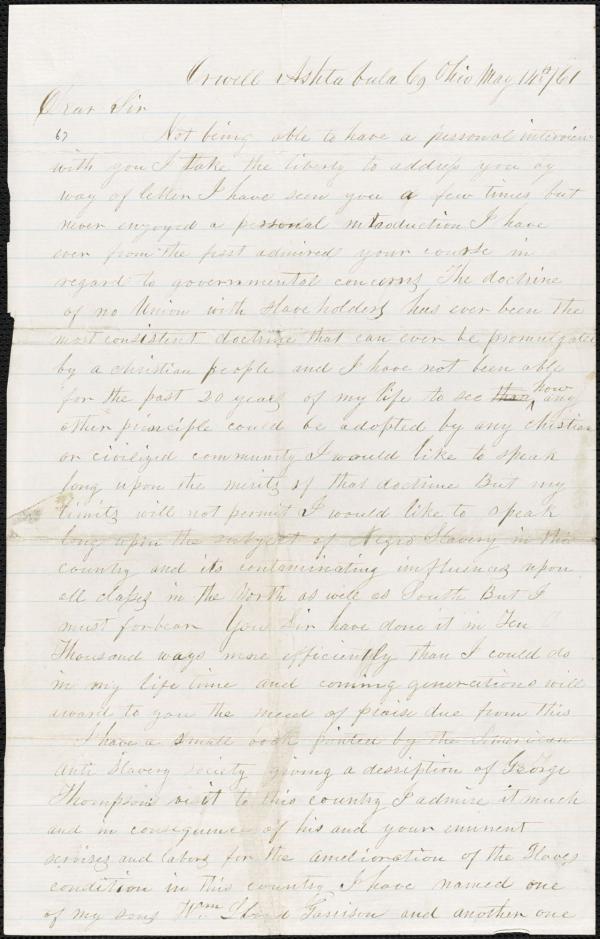 Orwell Ashtabula Co Ohio May 14th/61
Dear Sir
Not being able to have a personal interview
with you I take the liberty to address you by
way of letter I have seen you a few times but
never enjoyed a personal intraduction I have
ever from the first admired your course in
regard to governmental concerns The doctrine
of no Union with Slaveholders has ever been the
most consistent doctrine that can ever be promulgated
by a christian people and I have not been able
for the past 20 years of my life to see than how any
other principle could be adopted by any christian
or civilized community I would like to speak
long upon the merits of that doctrine But my
limits will not permit I would like to speak
long upon the subject of Negro Slavery in this
country and its contaminating influences upon
all classes in the North as well as South But I
must forbear You Sir have done it in Ten
Thousand ways more efficiently than I could do
in my life time and coming generations will
award to you the meed of praise due from this
I have a small book printed by the American
Anti Slavery Society giving a desription of George
Thompson's visit to this country I admire it much
and in consequence of his and your eminent
servises and labors for the amelioration of the Slaves
condition in this country I have named one
of my sons Wm Lloyd Garrison and another one